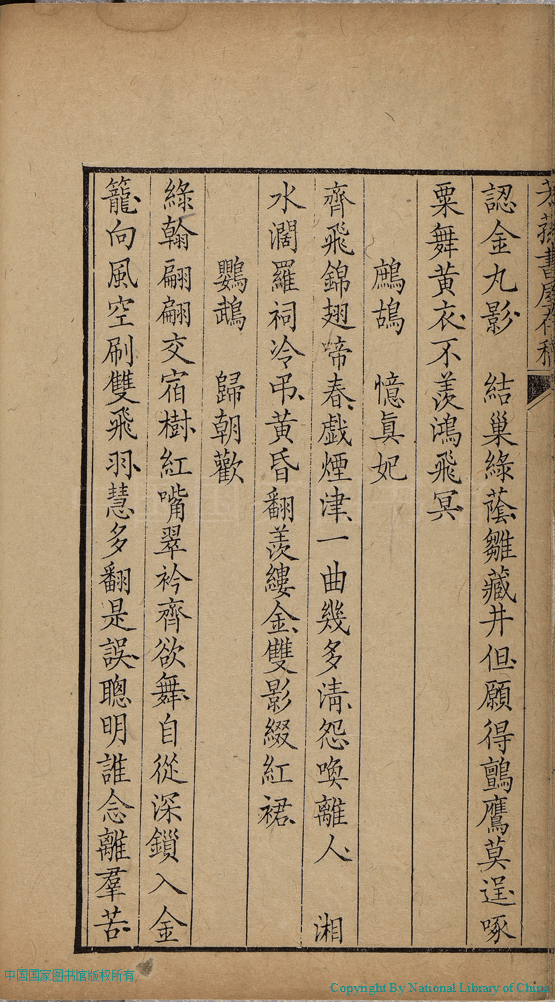 認金丸影　結巢綠蔭雛藏井但願得鸇鷹莫逞啄
粟舞黃衣不羨鴻飛冥
鷓鴣　憶眞妃
齊飛錦翅啼春戲煙津一曲幾多淸怨喚離人　湘
水濶羅祠冷弔黃昏翻羨縷金雙影綴紅裙
鸚鵡　歸朝歡
綠翰翩翩交宿樹紅嘴翠衿齊欲舞自從深鎖入金
籠向風空刷雙飛羽慧多翻是誤聰明誰念離羣苦
中国国家图书馆版权所有
Copyright By National Library of China